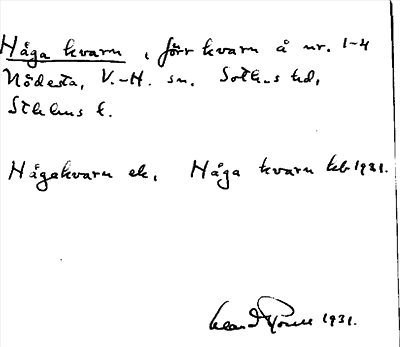 Håga kvarn, förr kvarn å nr. 1-4
Nödesta, V.-H. sn. Soths hd,
Sthlms l.
Hågakvarn ek, Håga kvarn keb 1931.
1931.